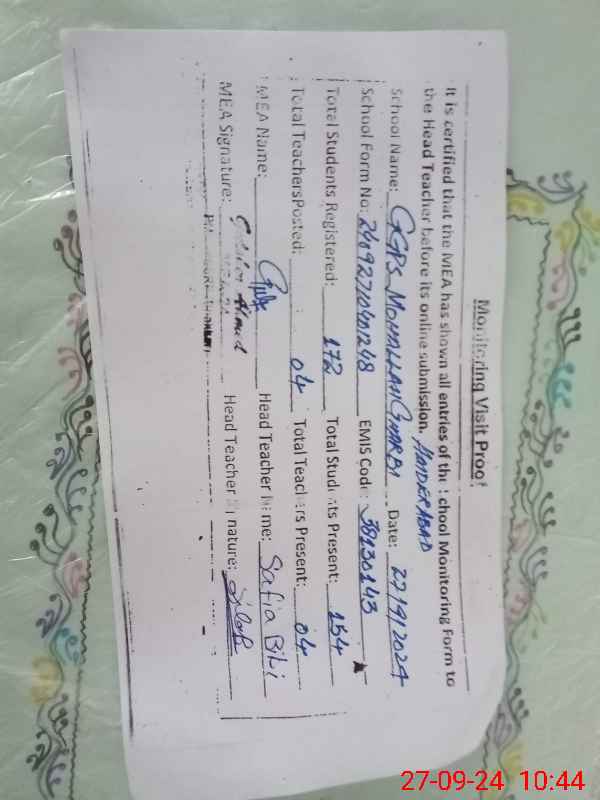 Monitoring Visit Proof
It is certified that the MEA has shown all entries of the School Monitoring Form to
the Head Teacher before its online submission. HAIDERABAD
School Name: GGPS MOHALLAH GHARBI Date: 27/9/2024
School Form No: 240927040248 EMIS Code: 38130143
Total Students Registered: 172 Total Students Present: 154
Total TeachersPosted: 04 Total Teachers Present: 04
MEA Name: Head Teacher Name: Safia Bibi
MEA Signature: Ahmed Head Teacher Signature:
27-09-24 10:44